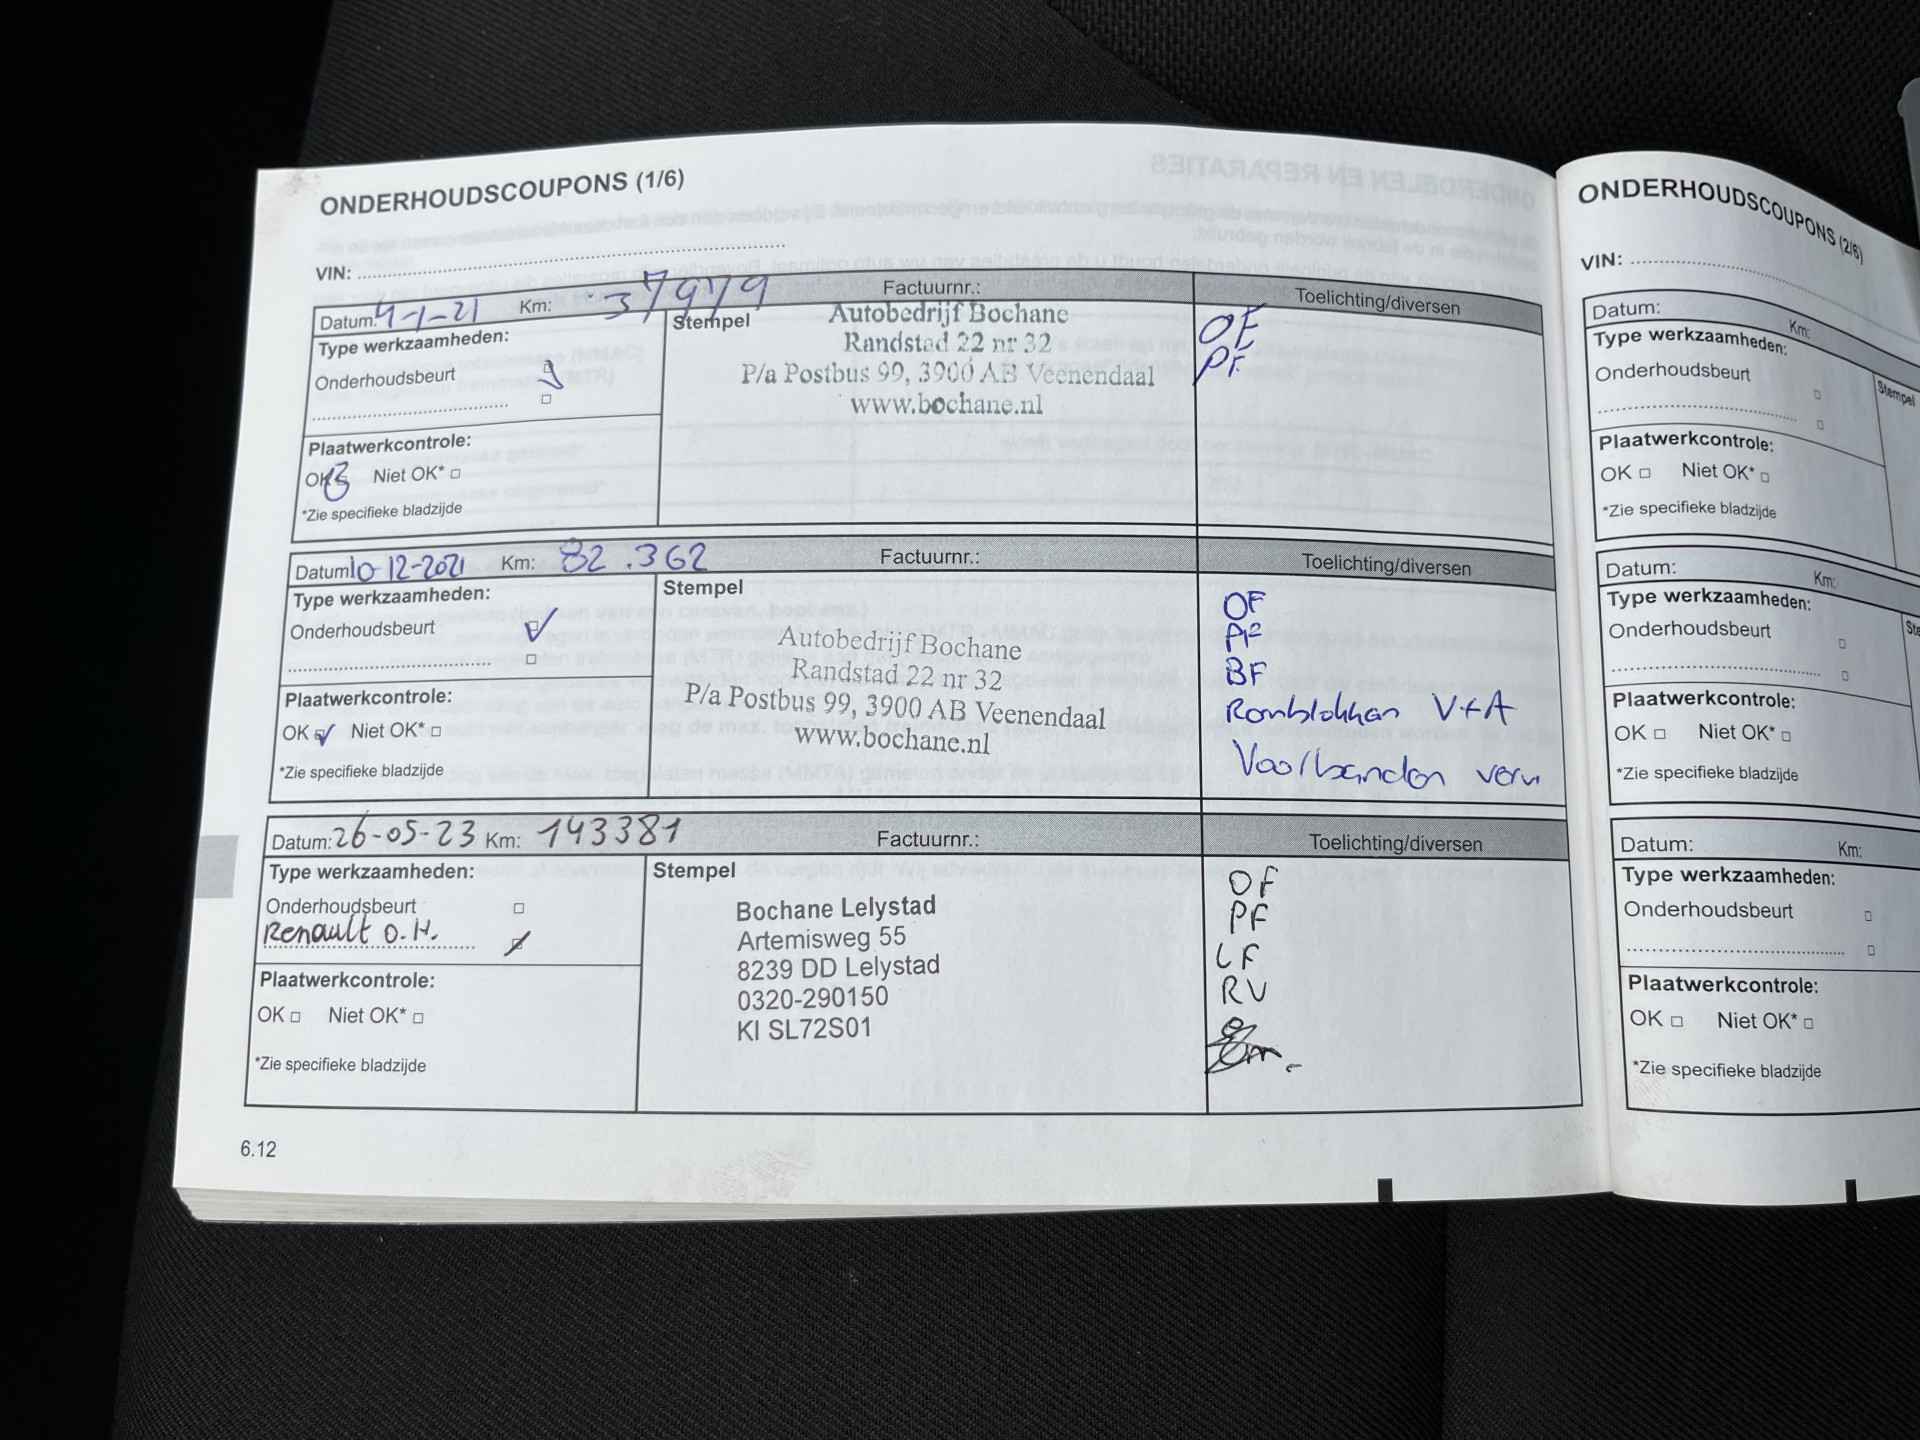 ONDERHOUDSCOUPONS (1/6)
VIN:
Datum: 4-1-21 Km: 37979 Factuurnr.: Toelichting/diversen
Type werkzaamheden:
Onderhoudsbeurt
Plaatwerkcontrole:
OK Niet OK*
*Zie specifieke bladzijde
Stempel
Autobedrijf Bochane
Randstad 22 nr 32
P/a Postbus 99, 3900 AB Veenendaal
www.bochane.nl
OF
PF
Datum 10-12-2021 Km: 82.362 Factuurnr.: Toelichting/diversen
Type werkzaamheden:
Onderhoudsbeurt
Plaatwerkcontrole:
OK Niet OK*
*Zie specifieke bladzijde
Stempel
Autobedrijf Bochane
Randstad 22 nr 32
P/a Postbus 99, 3900 AB Veenendaal
www.bochane.nl
OF
BF
Remblokken V+A
Voorbanden verv
Datum: 26-05-23 Km: 143381 Factuurnr.: Toelichting/diversen
Type werkzaamheden:
Onderhoudsbeurt
Renault O.H.
Plaatwerkcontrole:
OK Niet OK*
*Zie specifieke bladzijde
Stempel
Bochane Lelystad
Artemisweg 55
8239 DD Lelystad
0320-290150
KI SL72S01
OF
PF
LF
RV
6.12
ONDERHOUDSCOUPONS (2/6)
VIN:
Datum: Km:
Type werkzaamheden:
Onderhoudsbeurt
Stempel
Plaatwerkcontrole:
OK Niet OK*
*Zie specifieke bladzijde
Datum: Km:
Type werkzaamheden:
Onderhoudsbeurt
Plaatwerkcontrole:
OK Niet OK*
*Zie specifieke bladzijde
Datum: Km:
Type werkzaamheden:
Onderhoudsbeurt
Plaatwerkcontrole:
OK Niet OK*
*Zie specifieke bladzijde